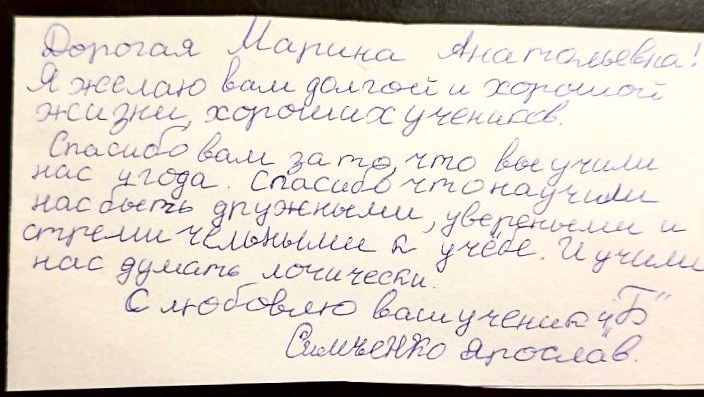 Дорогая Марина Анатольевна!
Я желаю вам долгой и хорошой
жизни, хороших учеников.
Спасибо вам за то, что вы учили
нас 4 года. Спасибо что научили
нас быть дружными, увереными и
стремительными к учёбе. И учили
нас думать логически.
С любовлю ваш ученик 4 "Б"
Симченко Ярослав.